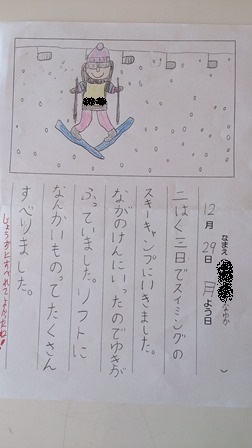 12月29日月よう日
なまえ
二はく三日でスイミングの
スキーキャンプにいきました。
ながのけんにいったのでゆきが
ふっていました。リフトに
なんかいものってたくさん
すべりました。